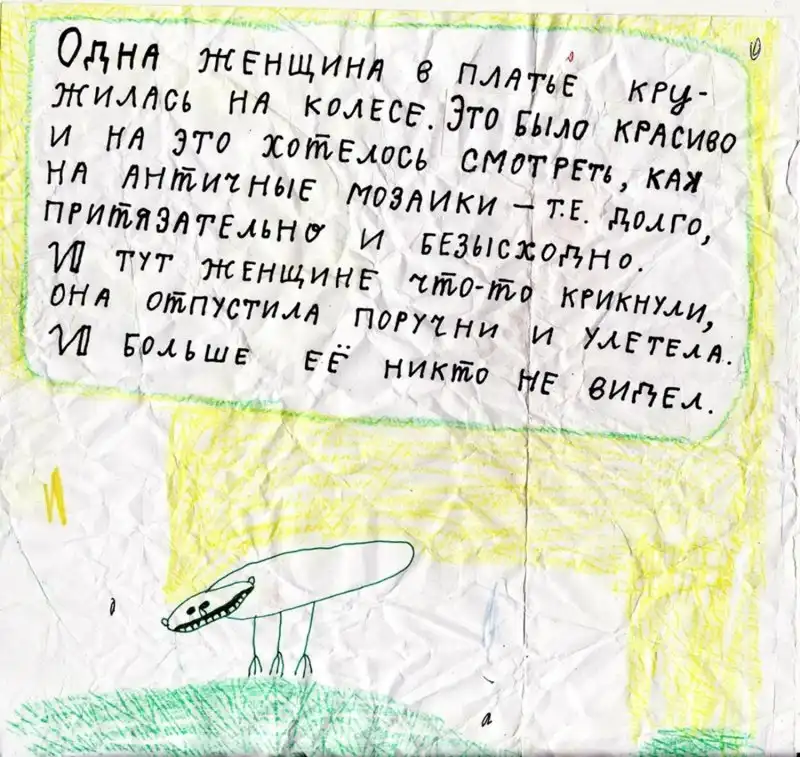 Одна женщина в платье кру-
жилась на колесе. Это было красиво
и на это хотелось смотреть, как
на античные мозаики – т.е. долго,
притязательно и безысходно.
И тут женщине что-то крикнули,
она отпустила поручни и улетела.
И больше её никто не видел.
И
а